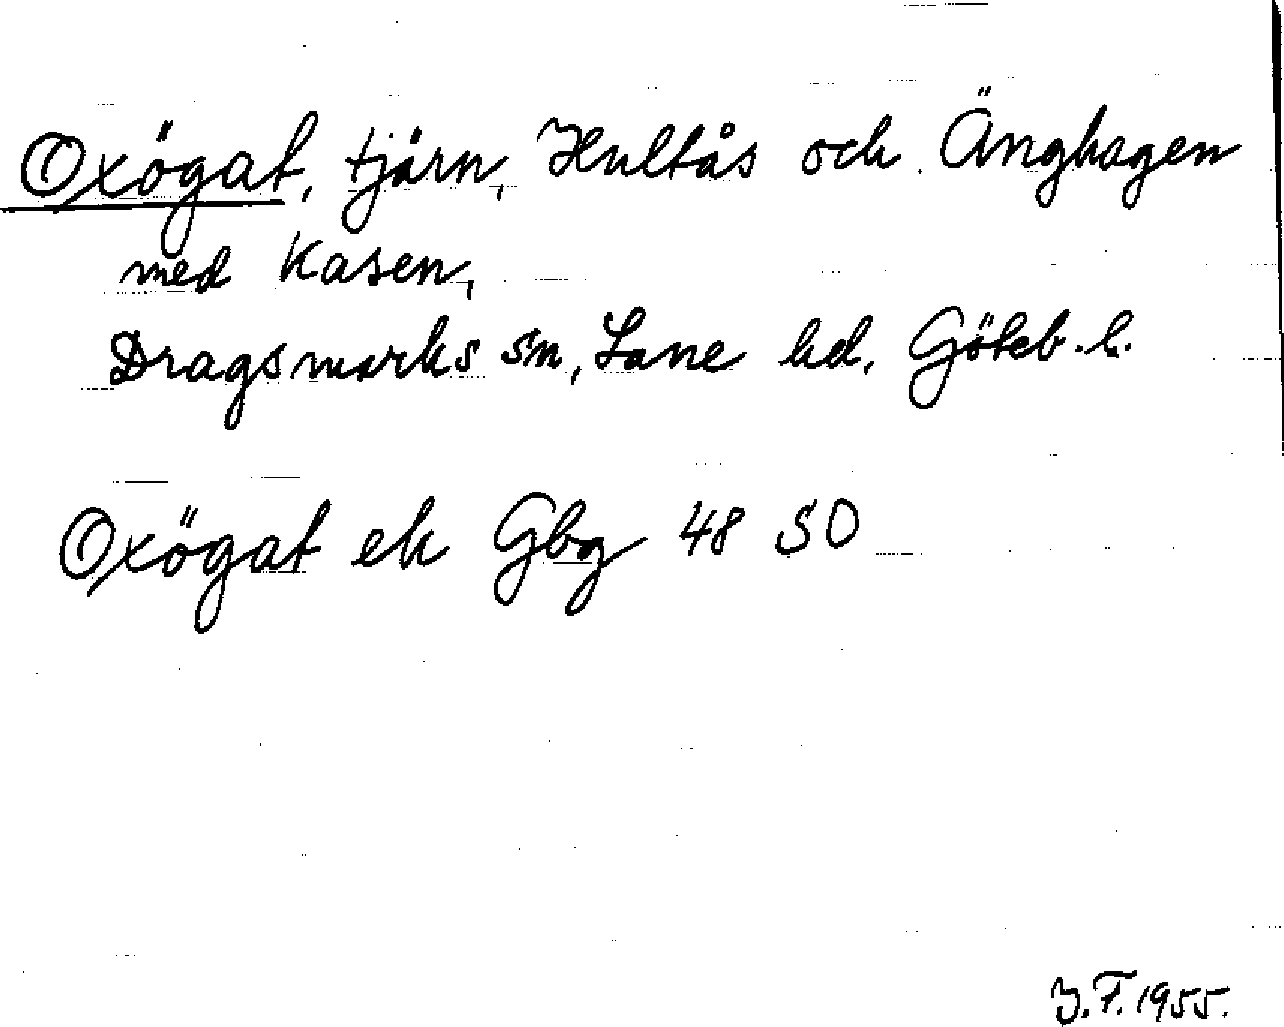 Oxögat, tjärn, Hultås och Änghagen
med Kasen,
Dragsmarks sn, Lane hd, Göteb. l.
Oxögat ek Gbg 48 SO
J.F. 1955.